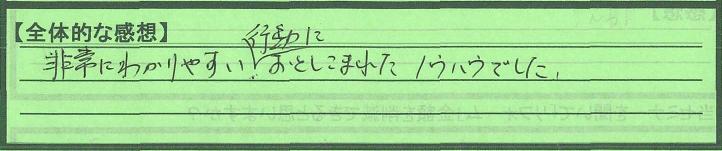 【全体的な感想】
行動に
非常にわかりやすい!おとしこまれたノウハウでした。